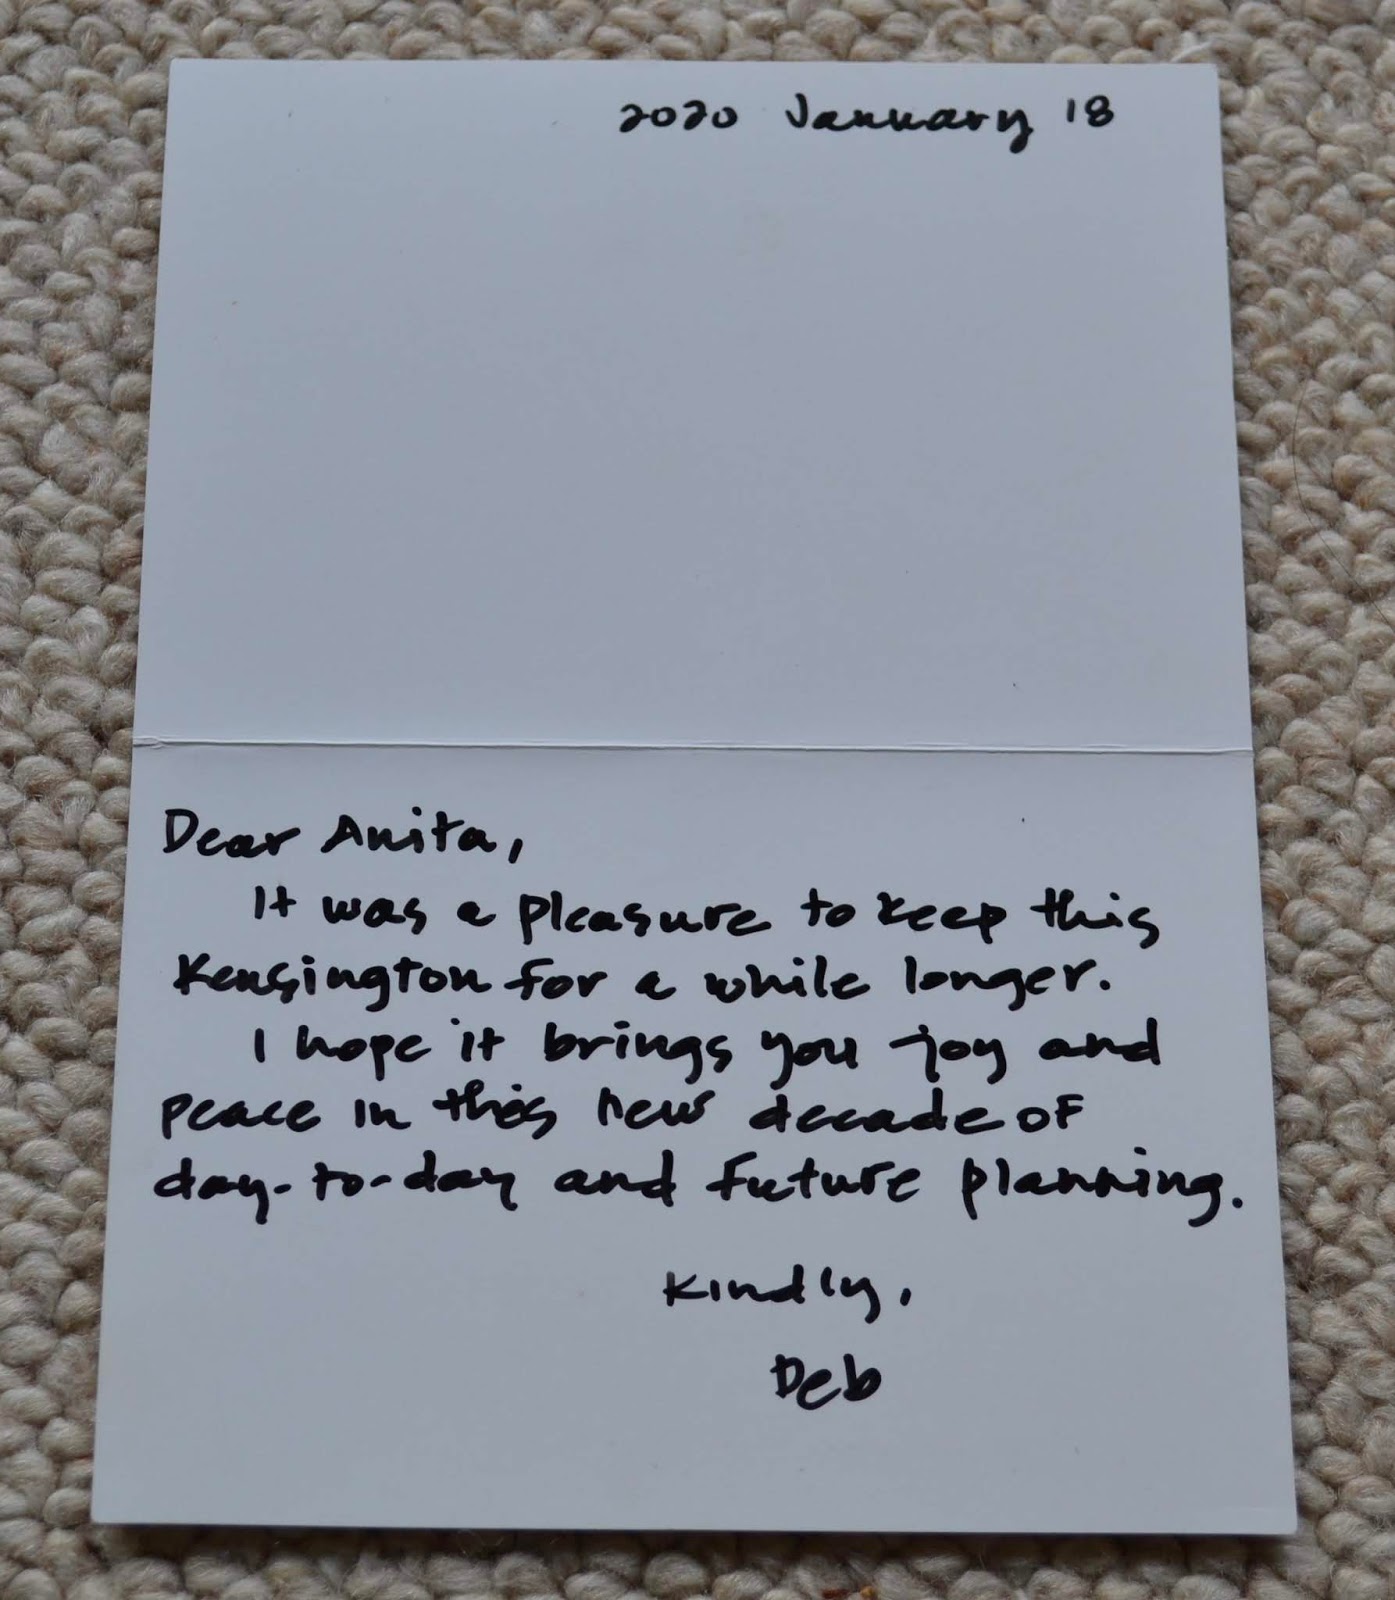 2020 January 18
Dear Anita,
It was a pleasure to keep this
Kensington for a while longer.
I hope it brings you joy and
peace in this new decade of
day-to-day and future planning.
Kindly,
Deb